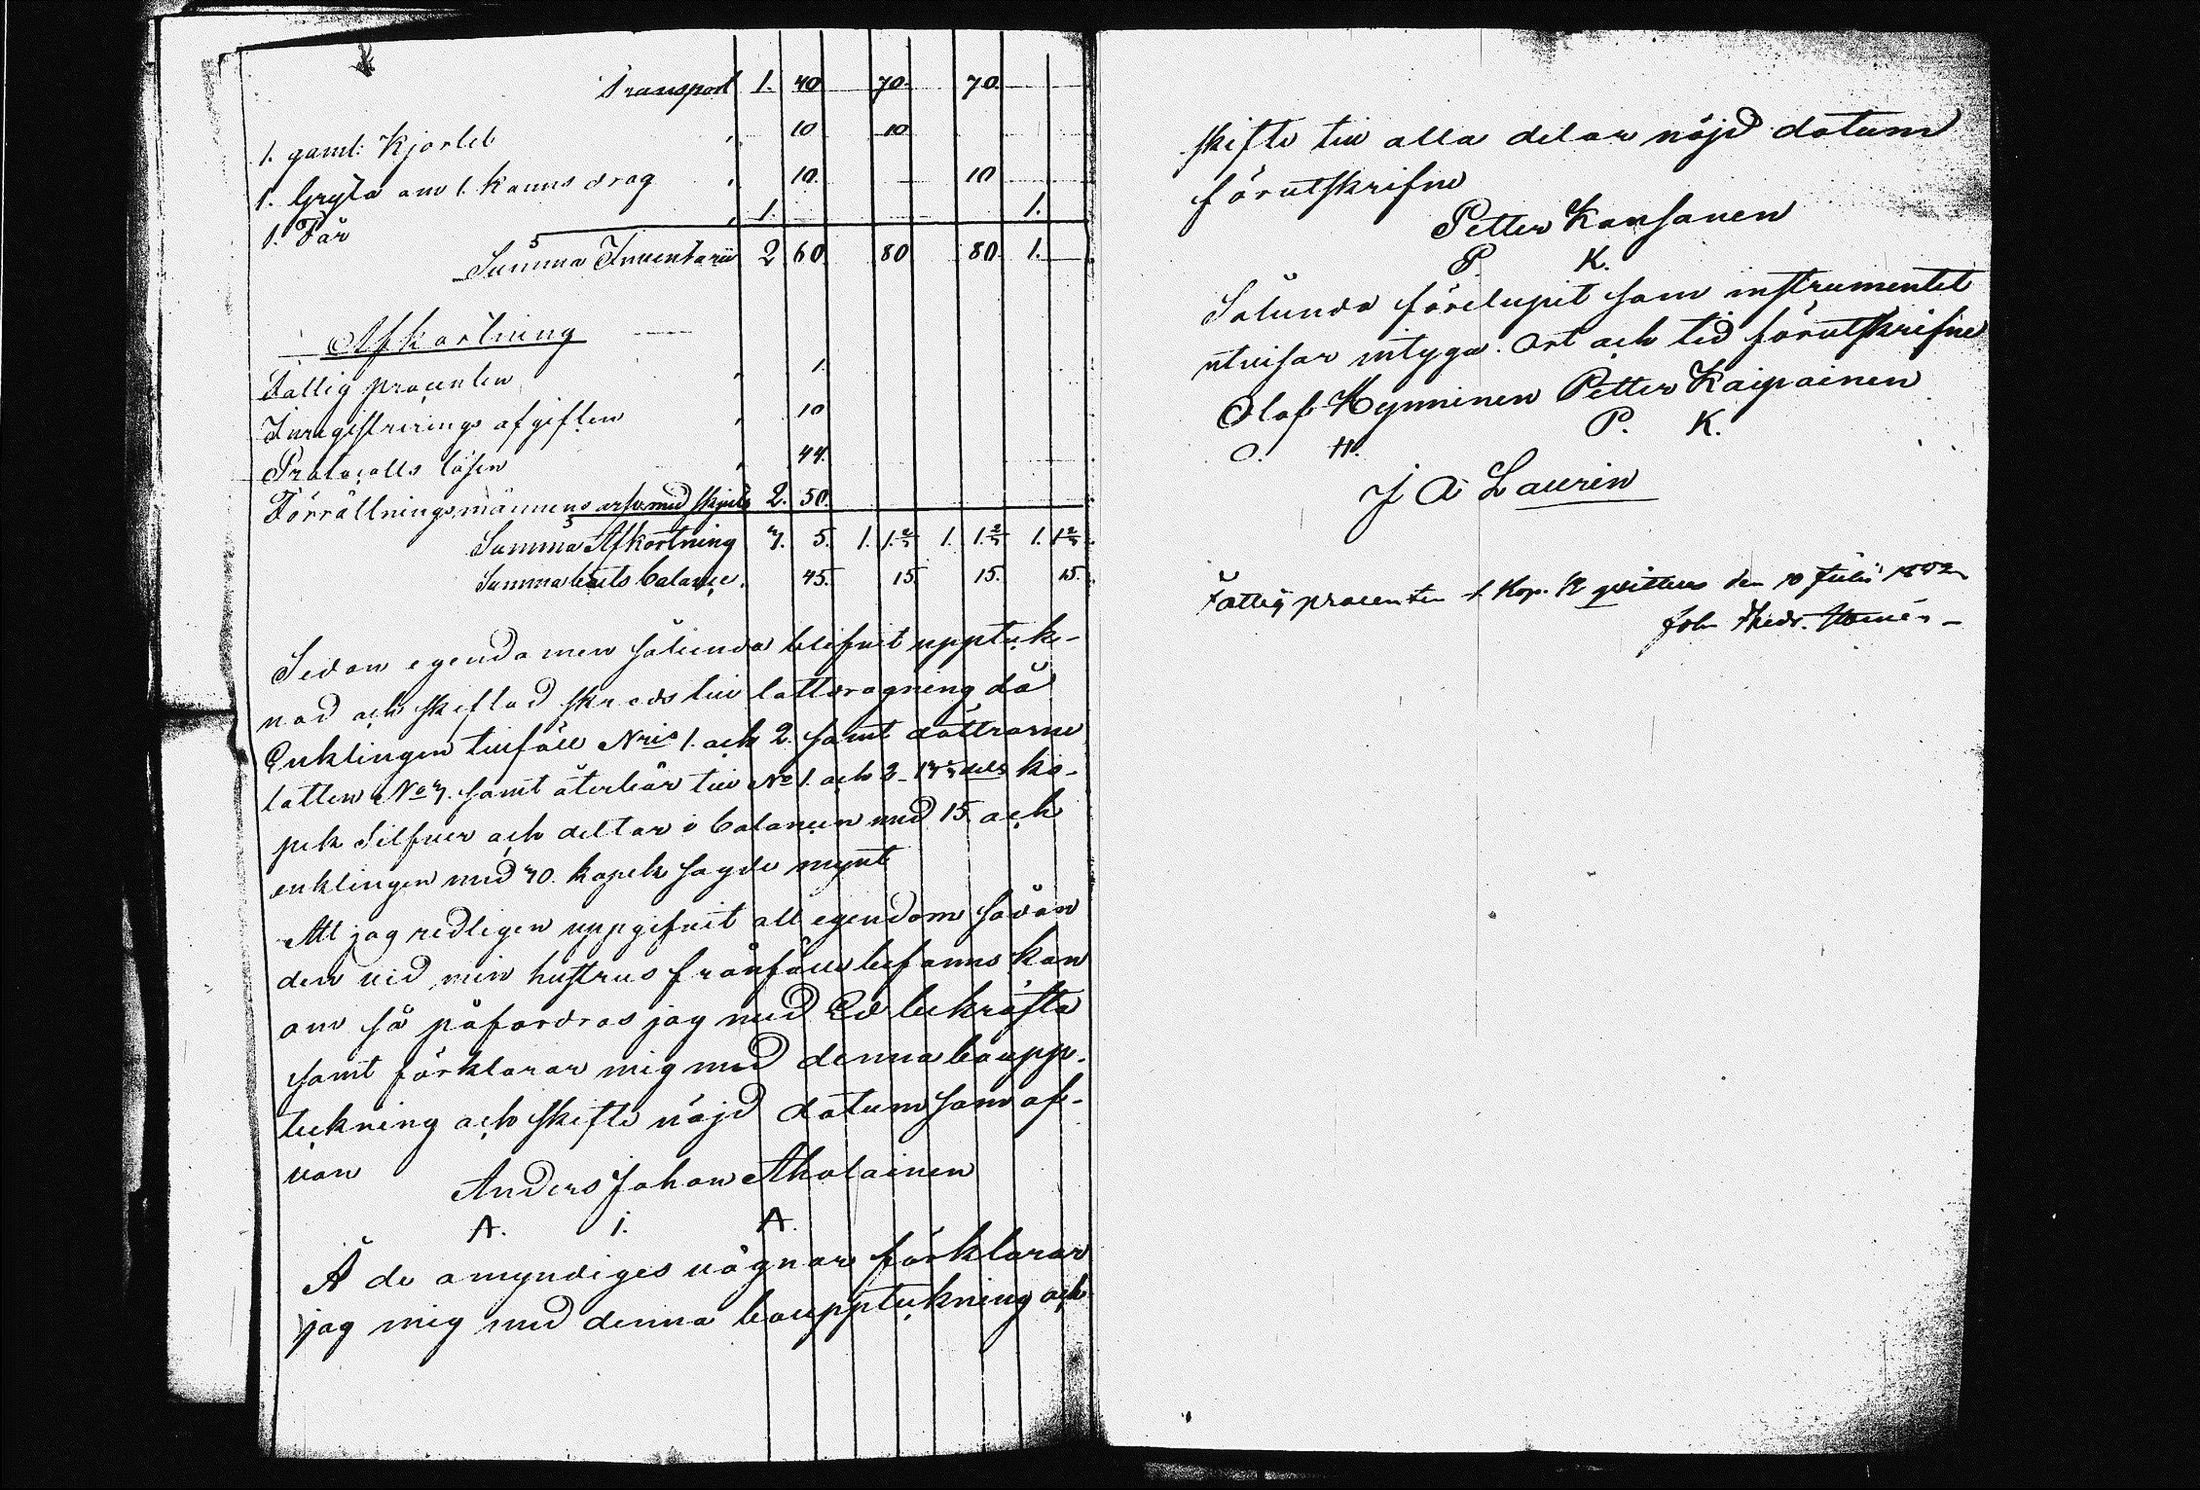 Transport 1. 40 70. 70.
1. gaml: Kjortel " 10 10
1. Gryta om 1. Kanns drag " 10. 10
1. Får " 1. 1.
Summa Inventarii 2 60. 80 80. 1.
Afkortning
Fattig procenten " 1.
Inregistrerings afgiften " 10
Protocolls lösen " 44.
Förrättningsmännens arfvo med skjuts 2. 50.
Summa Afkortning 3. 5. 1. 1.⅔ 1. 1.⅔ 1. 1⅔
Summa boets balance. 45. 15. 15. 15.
Sedan egendomen sålunda blifvit upptek-
nad och skiftad skreds till lottdragning då
Enklingen tillföll Nris 1. och 2. samt döttrarne
lotten No 3. samt återbär till No 1. och 2 ko-
pek Silfver och deltar i balancen med 15 och
enklingen med 30. kopek sagde mynt
Att jag redligen uppgifvit all egendom sådan
den vid min hustrus frånfälle befanns kan
om så påfordras jag med Ed bekräfta
samt förklarar mig med denna boupp-
tekning och skifte nöjd datum som of-
van
Anders Johan Aholainen
A. J. A.
Å de omyndiges vägnar förklarar
jag mig med denna bouppteckning och
skifte till alla delar nöjd datum
förutskrifne
Petter Kansanen
P. K.
Sålunda förelupit som instrumentet
utvisar intyga. Ort och tid förutskrifne
Olof Hynninen Petter Kaipainen
O. H. P. K.
J A Laurin
Fattig procenten 1. Kop. qvitteras den 10 Julii 1852
Joh Thedr.